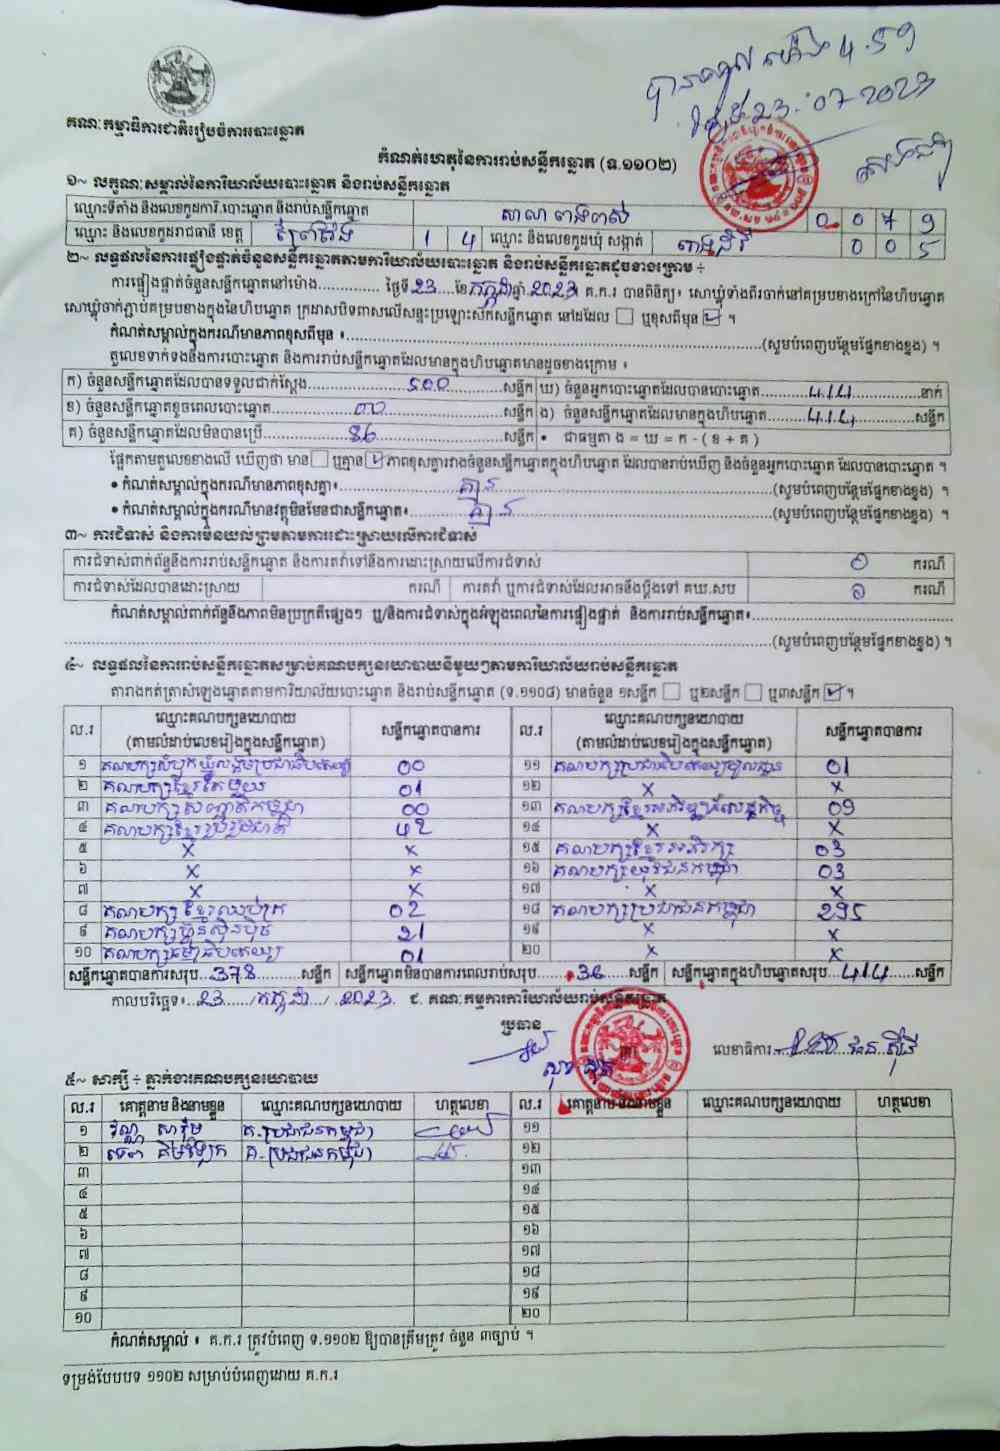 បានទទួល ម៉ោង 4.59
ថ្ងៃទី 23-07-2023
គណៈកម្មាធិការជាតិរៀបចំការបោះឆ្នោត
កំណត់ហេតុនៃការរាប់សន្លឹកឆ្នោត (ទ.១១០២)
១~ លក្ខណៈសម្គាល់នៃការិយាល័យបោះឆ្នោត និងរាប់សន្លឹកឆ្នោត
ឈ្មោះទីតាំង និងលេខកូដការិ.បោះឆ្នោត និងរាប់សន្លឹកឆ្នោត សាលា 0 0 7 9
ឈ្មោះ និងលេខកូដរាជធានី ខេត្ត ព្រៃវែង 1 4 ឈ្មោះ និងលេខកូដឃុំ សង្កាត់ 0 0 5
២~ លទ្ធផលនៃការផ្ទៀងផ្ទាត់ចំនួនសន្លឹកឆ្នោតតាមការិយាល័យបោះឆ្នោត និងរាប់សន្លឹកឆ្នោតដូចខាងក្រោម ÷
ការផ្ទៀងផ្ទាត់ចំនួនសន្លឹកឆ្នោតនៅម៉ោង............... ថ្ងៃទី 23 ខែ កក្កដា ឆ្នាំ 2023 គ.ក.រ បានពិនិត្យ៖ សោឃ្លុំទាំងពីរចាក់នៅគម្របខាងក្រៅនៃហិបឆ្នោត
សោឃ្លុំចាក់ភ្ជាប់គម្របខាងក្នុងនៃហិបឆ្នោត ក្រដាសបិទពាសលើសន្ទះប្រឡោះស៊កសន្លឹកឆ្នោត នៅដដែល ☐ ឬខុសពីមុន ☑ ។
កំណត់សម្គាល់ក្នុងករណីមានភាពខុសពីមុន ៖........(សូមបំពេញបន្ថែមផ្នែកខាងខ្នង) ។
តួលេខទាក់ទងនឹងការបោះឆ្នោត និងការរាប់សន្លឹកឆ្នោតដែលមានក្នុងហិបឆ្នោតមានដូចខាងក្រោម ៖
ក) ចំនួនសន្លឹកឆ្នោតដែលបានទទួលជាក់ស្តែង 500 សន្លឹក ឃ) ចំនួនអ្នកបោះឆ្នោតដែលបានបោះឆ្នោត 414 នាក់
ខ) ចំនួនសន្លឹកឆ្នោតខូចពេលបោះឆ្នោត 00 សន្លឹក ង) ចំនួនសន្លឹកឆ្នោតដែលមានក្នុងហិបឆ្នោត 414 សន្លឹក
គ) ចំនួនសន្លឹកឆ្នោតដែលមិនបានប្រើ 86 សន្លឹក • ជាធម្មតា ង = ឃ = ក - ( ខ + គ )
ផ្អែកតាមតួលេខខាងលើ ឃើញថា មាន ☐ ឬគ្មាន ☑ ភាពខុសគ្នារវាងចំនួនសន្លឹកឆ្នោតក្នុងហិបឆ្នោត ដែលបានរាប់ឃើញ និងចំនួនអ្នកបោះឆ្នោត ដែលបានបោះឆ្នោត ។
• កំណត់សម្គាល់ក្នុងករណីមានភាពខុសគ្នា៖ គ្មាន (សូមបំពេញបន្ថែមផ្នែកខាងខ្នង) ។
• កំណត់សម្គាល់ក្នុងករណីមានវត្ថុមិនមែនជាសន្លឹកឆ្នោត៖ គ្មាន (សូមបំពេញបន្ថែមផ្នែកខាងខ្នង) ។
៣~ ការជំទាស់ និងការមិនយល់ព្រមតាមការដោះស្រាយលើការជំទាស់
ការជំទាស់ពាក់ព័ន្ធនឹងការរាប់សន្លឹកឆ្នោត និងការតវ៉ាទៅនឹងការដោះស្រាយលើការជំទាស់ 0 ករណី
ការជំទាស់ដែលបានដោះស្រាយ ករណី ការតវ៉ា ឬការជំទាស់ដែលអាចនឹងប្តឹងទៅ គឃ.សប 0 ករណី
កំណត់សម្គាល់ពាក់ព័ន្ធនឹងភាពមិនប្រក្រតីផ្សេងៗ ឬ/និងការជំទាស់ក្នុងអំឡុងពេលនៃការផ្ទៀងផ្ទាត់ និងការរាប់សន្លឹកឆ្នោត៖........
........(សូមបំពេញបន្ថែមផ្នែកខាងខ្នង) ។
៤~ លទ្ធផលនៃការរាប់សន្លឹកឆ្នោតសម្រាប់គណបក្សនយោបាយនីមួយៗតាមការិយាល័យរាប់សន្លឹកឆ្នោត
តារាងកត់ត្រាសំឡេងឆ្នោតតាមការិយាល័យបោះឆ្នោត និងរាប់សន្លឹកឆ្នោត (ទ.១១០៨) មានចំនួន ១សន្លឹក ☐ ឬ២សន្លឹក ☐ ឬ៣សន្លឹក ☑ ។
ល.រ ឈ្មោះគណបក្សនយោបាយ (តាមលំដាប់លេខរៀងក្នុងសន្លឹកឆ្នោត) សន្លឹកឆ្នោតបានការ ល.រ ឈ្មោះគណបក្សនយោបាយ (តាមលំដាប់លេខរៀងក្នុងសន្លឹកឆ្នោត) សន្លឹកឆ្នោតបានការ
១ គណបក្សសំបុកឃ្មុំសង្គមប្រជាធិបតេយ្យ 00 ១១ គណបក្សប្រជាធិបតេយ្យមូលដ្ឋាន 01
២ គណបក្សខ្មែរតែមួយ 01 ១២ x x
៣ គណបក្សសញ្ជាតិកម្ពុជា 00 ១៣ គណបក្សខ្មែរអភិវឌ្ឍន៍សេដ្ឋកិច្ច 09
៤ គណបក្សខ្មែររួបរួមជាតិ 42 ១៤ x x
៥ x x ១៥ គណបក្សខ្មែរអភិរក្ស 03
៦ x x ១៦ គណបក្សយុវជនកម្ពុជា 03
៧ x x ១៧ x x
៨ គណបក្សខ្មែរឈប់ក្រ 02 ១៨ គណបក្សប្រជាជនកម្ពុជា 295
៩ គណបក្សហ៊្វុនស៊ិនប៉ិច 21 ១៩ x x
១០ គណបក្សធម្មាធិបតេយ្យ 01 ២០ x x
សន្លឹកឆ្នោតបានការសរុប 378 សន្លឹក សន្លឹកឆ្នោតមិនបានការពេលរាប់សរុប 36 សន្លឹក សន្លឹកឆ្នោតក្នុងហិបឆ្នោតសរុប 414 សន្លឹក
កាលបរិច្ឆេទ៖ 23 / កក្កដា / 2023 ៩. គណៈកម្មការការិយាល័យរាប់សន្លឹកឆ្នោត
ប្រធាន
លេខាធិការ
៥~ សាក្សី ÷ ភ្នាក់ងារគណបក្សនយោបាយ
ល.រ គោត្តនាម និងនាមខ្លួន ឈ្មោះគណបក្សនយោបាយ ហត្ថលេខា ល.រ គោត្តនាម និងនាមខ្លួន ឈ្មោះគណបក្សនយោបាយ ហត្ថលេខា
១ គ.ប្រជាជនកម្ពុជា ១១
២ គ.ប្រជាជនកម្ពុជា ១២
៣ ១៣
៤ ១៤
៥ ១៥
៦ ១៦
៧ ១៧
៨ ១៨
៩ ១៩
១០ ២០
កំណត់សម្គាល់ ៖ គ.ក.រ ត្រូវបំពេញ ទ.១១០២ ឱ្យបានត្រឹមត្រូវ ចំនួន ៣ច្បាប់ ។
ទម្រង់បែបបទ ១១០២ សម្រាប់បំពេញដោយ គ.ក.រ